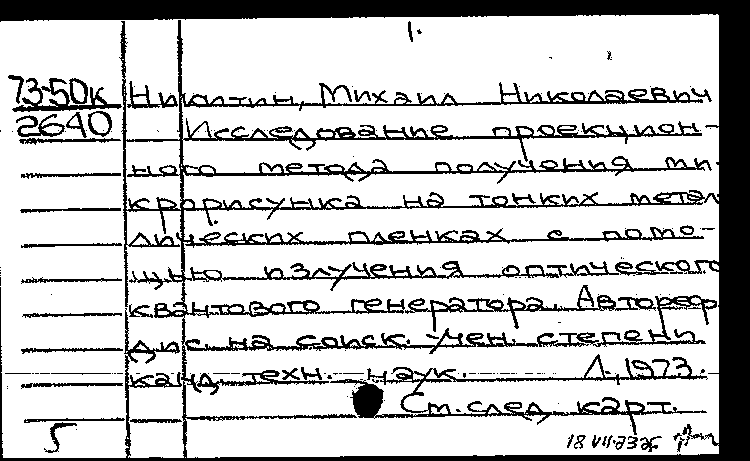 1.
73-50к Никитин, Михаил Николаевич
2640 Исследование проекцион-
ного метода получения ми-
крорисунка на тонких метал
лических пленках с помо-
щью излучения оптического
квантового генератора. Автореф.
дис. на соиск. учен. степени
канд. техн. наук. Л., 1973.
См. след. карт.
5 18 VII-73